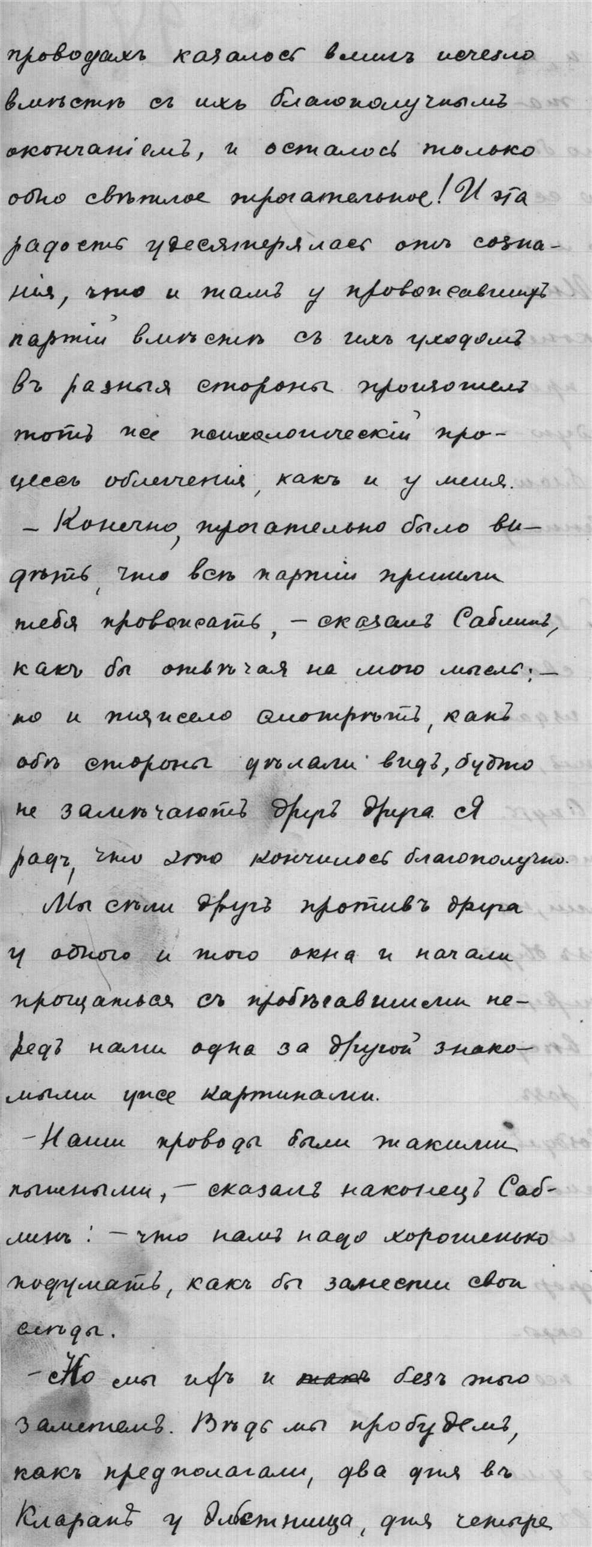 проводахъ казалось вмигъ исчезло
вмѣстѣ съ ихъ благополучнымъ
окончаніемъ, и осталось только
одно свѣтлое трогательное! И эта
радость удесятерялась отъ созна-
нія, что и тамъ у провожавшихъ
партій вмѣстѣ съ ихъ уходомъ
въ разныя стороны произошелъ
тотъ же психологическій про-
цессъ облегченія, какъ и у меня.
– Конечно, трогательно было ви-
дѣть, что всѣ партіи пришли
тебя провожать, – сказалъ Саблинъ,
какъ бы отвѣчая на мою мысль; –
но и тяжело смотрѣть, какъ
обѣ стороны дѣлали видъ, будто
не замѣчаютъ другъ друга. Я
радъ, что это кончилось благополучно.
Мы сѣли другъ противъ друга
у одного и того окна и начали
прощаться съ пробѣгавшими пе-
редъ нами одна за другой знако-
мыми уже картинами.
– Наши проводы были такими
пышными, – сказалъ наконецъ Саб-
линъ: – что намъ надо хорошенько
подумать, какъ бы замести свои
слѣды.
– Но мы ихъ и такъ безъ того
заметемъ. Вѣдь мы пробудемъ,
какъ предполагали, два дня въ
Кларанѣ у дня четыре